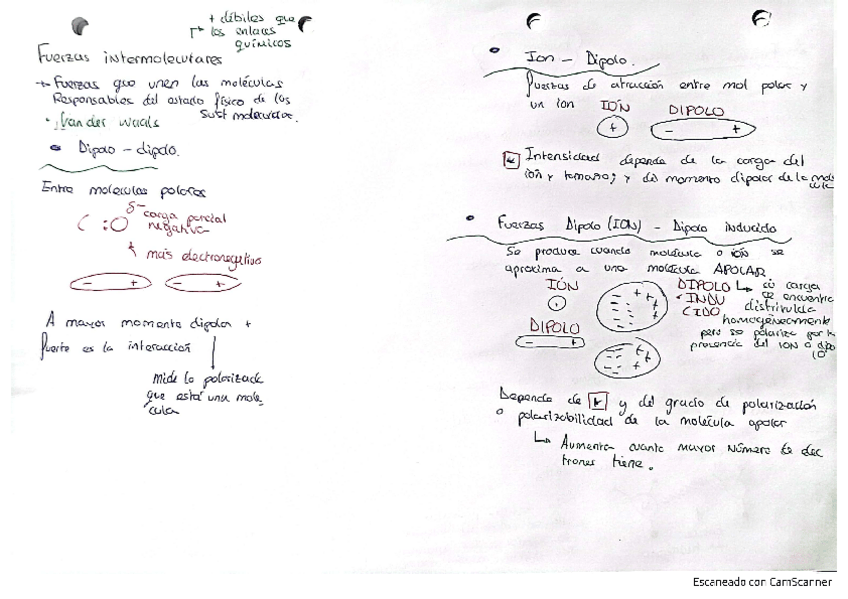 + débiles que
los enlaces
químicos
Fuerzas intermoleculares
→ Fuerzas que unen las moléculas
Responsables del estado físico de las
sust moleculares.
· Van der waals
• Dipolo - dipolo.
Entre moleculas polares
C :O δ- carga parcial
negativa
más electronegativo
- + - +
A mayor momento dipolar +
fuerte es la interacción
Mide la polarizada
que está una mole
cula
• Ion - Dipolo.
fuerzas de atracción entre mol polar y
un ion IÓN DIPOLO
+ - +
Intensidad depende de la carga del
ión y tamaño; y del momento dipolar de la molé
cula
• Fuerzas Dipolo (ION) - Dipolo inducido
Se produce cuando molécula o ión se
aproxima a una molécula APOLAR
IÓN
DIPOLO
INDU
CIDO
↳ su carga
se encuentra
distribuida
homogéneamente
pero se polariza por la
presencia del ION o dipo
lo
DIPOLO
- +
Depende de * y del grado de polarización
o polarizabilidad de la molécula apolar
↳ Aumenta cuanto mayor número de elec
trones tiene.
Escaneado con CamScanner